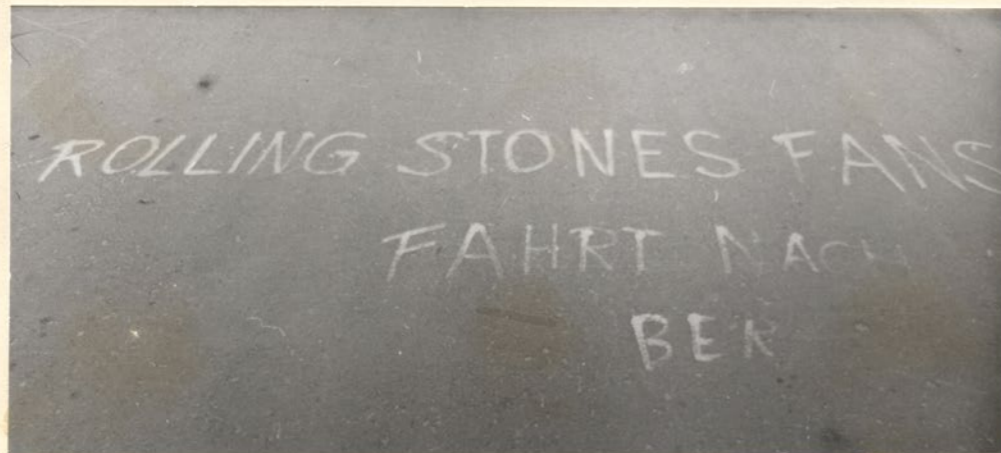 ROLLING STONES FANS
FAHRT NACH
BER